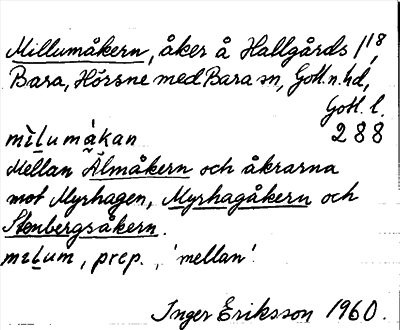 Millumåkern, åker å Hallgårds 1/18,
Bara, Hörsne med Bara sn, Gotl. n. hd,
Gotl. l.
mìlumà̰kan 288
Mellan Älmåkern och åkrarna
mot Myrhagen, Myrhagåkern och
Stenbergsåkern.
milum, prep., 'mellan'.
Inger Eriksson 1960.